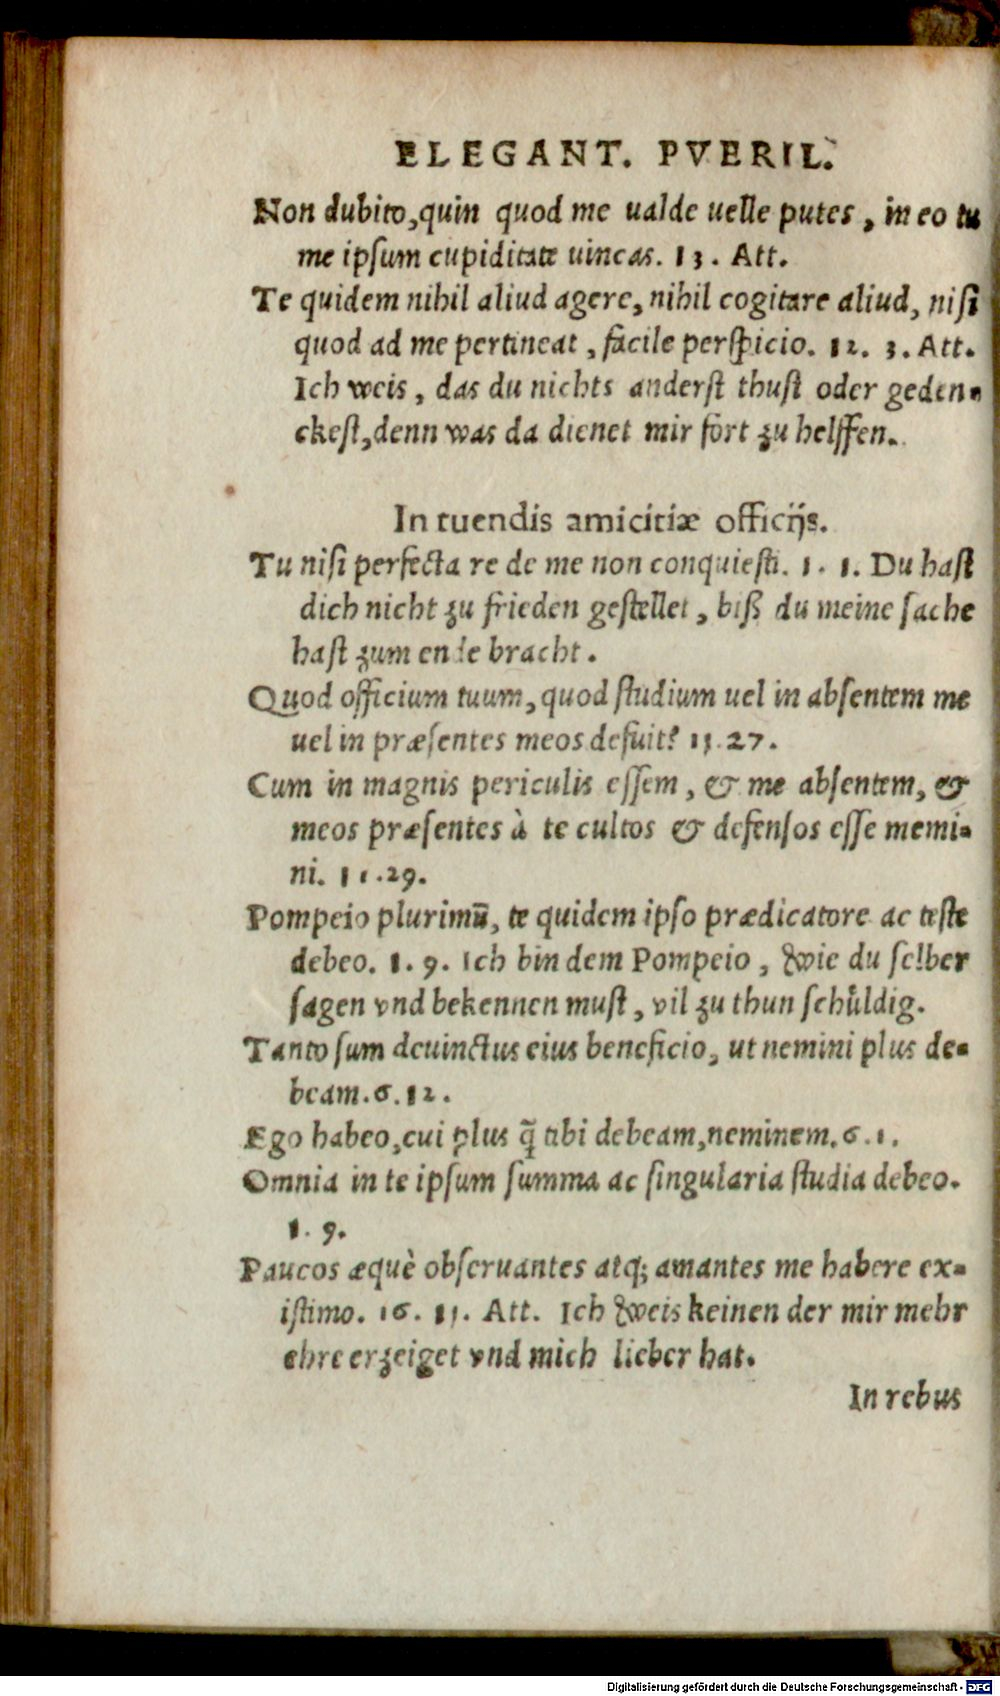 ELEGANT. PVERIL.
Non dubito, quin quod me ualde uelle putes, in eo tu
me ipſum cupiditate uincas. 13. Att.
Te quidem nihil aliud agere, nihil cogitare aliud, niſi
quod ad me pertineat, facile perſpicio. 12. 3. Att.
Ich weis, das du nichts anderſt thuſt oder geden-
ckeſt, denn was da dienet mir fort zu helffen.
In tuendis amicitiæ officijs.
Tu niſi perfecta re de me non conquieſti. 1. 1. Du haſt
dich nicht zu frieden geſtellet, biß du meine ſache
haſt zum ende bracht.
Quod officium tuum, quod ſtudium uel in abſentem me
uel in præſentes meos defuit? 11.27.
Cum in magnis periculis eſſem, & me abſentem, &
meos præſentes à te cultos & defenſos eſſe memi-
ni. 11.29.
Pompeio plurimū, te quidem ipſo prædicatore ac teſte
debeo. 1. 9. Ich bin dem Pompeio, wie du ſelber
ſagen vnd bekennen muſt, vil zu thun ſchůldig.
Tanto ſum deuinctus eius beneficio, ut nemini plus de-
beam. 6. 12.
Ego habeo, cui plus q̃ tibi debeam, neminem. 6. 1.
Omnia in te ipſum ſumma ac ſingularia ſtudia debeo.
1. 9.
Paucos æquè obſeruantes atq; amantes me habere ex-
iſtimo. 16. 11. Att. Ich weis keinen der mir mehr
ehre erzeiget vnd mich lieber hat.
In rebus
Digitalisierung gefördert durch die Deutsche Forschungsgemeinschaft - DFG